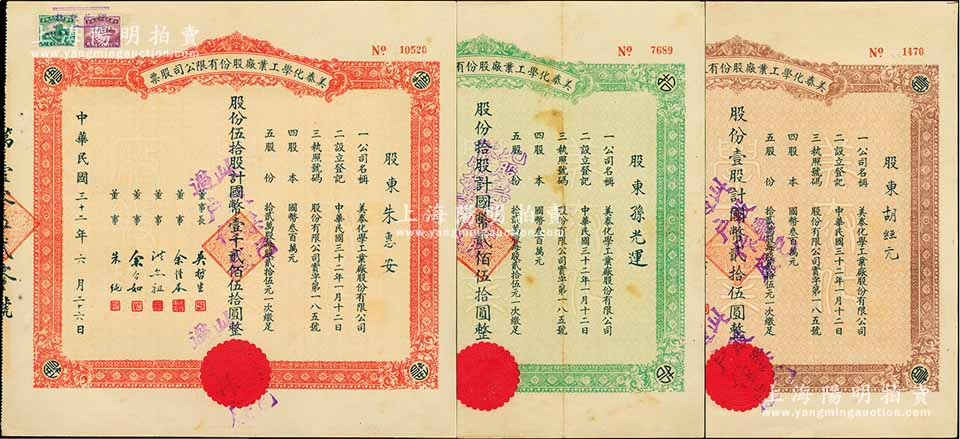 上海陽明拍賣
www.yangmingauction.com
№ 10520
美泰化學工業廠股份有限公司股票
股東 朱惠安
一公司名稱 美泰化學工業廠股份有限公司
二設立登記 中華民國三十二年一月十二日
三執照號碼 股份有限公司實字第一八五號
四股本 國幣叁百萬元
五股份 拾貳萬股每股貳拾伍元一次繳足
股份伍拾股計國幣壹千貳佰伍拾圓整
董事長
董事
董事
董事
董事 朱
中華民國三十二年六月二十六日
№ 7689
美泰化學工業廠股份有
股東 孫光運
一公司名稱 美泰化學工業廠股份有限公司
二設立登記 中華民國三十二年一月十二日
三執照號碼 股份有限公司實字第一八五號
四股本 國幣叁百萬元
五股份 拾貳萬股每股貳拾伍元一次繳足
股份拾股計國幣貳佰伍拾圓整
上海陽明拍賣
www.yangmingauction.com
№ 1470
美泰化學工業廠股份有
股東 胡經元
一公司名稱 美泰化學工業廠股份有限公司
二設立登記 中華民國三十二年一月十二日
三執照號碼 股份有限公司實字第一八五號
四股本 國幣叁百萬元
五股份 拾貳萬股每股貳拾伍元一次繳足
股份壹股計國幣貳拾伍圓整
上海陽明拍賣
www.yangmingauction.com